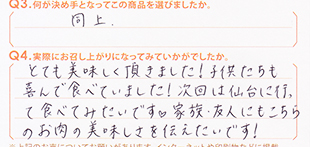 Q3.何が決め手となってこの商品を選びましたか。
同上.
Q4.実際にお召し上がりになってみていかがでしたか。
とても美味しく頂きました!子供たちも
喜んで食べていました!次回は仙台に行っ
て食べてみたいです♡家族・友人にもこちら
のお肉の美味しさを伝えたいです!